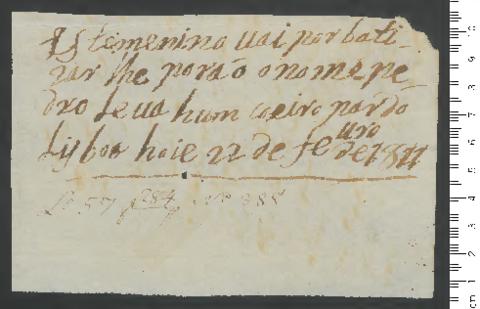 Es temenino uai por bati-
zar lhe porão o nome pe
dro Leua hum coeiro pardo
Lisboa hoie 22 de feuro de 1811
Lo 57 f 284 No 385
cm 1 2 3 4 5 6 7 8 9 10